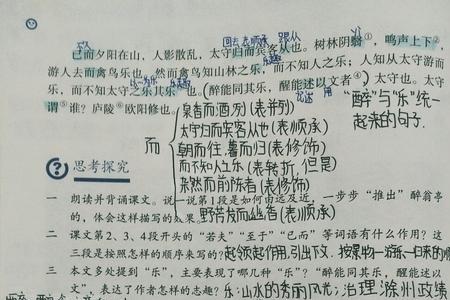 不久
回去 表顺承 跟从
已而夕阳在山，人影散乱，太守归而宾客从也。树林阴翳①，鸣声上下②，
游人去而禽鸟乐也。然而禽鸟知山林之乐，而不知人之乐；人知从太守游而
乐，而不知太守之乐其乐也。醉能同其乐，醒能述以文者④，太守也。太守
以…为乐 乐趣 记述 用
谓⑤谁？庐陵⑥欧阳修也。
“醉”与“乐”统一
起来的句子.
而
泉香而酒冽(表并列)
太守归而宾客从也(表顺承)
朝而往,暮而归(表修饰)
而不知人之乐(表转折,但是)
杂然而前陈者(表修饰)
野芳发而幽香(表顺承)
思考探究
一 朗读并背诵课文。说一说第1段是如何由远及近，一步步“推出”醉翁亭
的，体会这样描写的效果。
二 课文第2、3、4段开头的“若夫”“至于”“已而”等词语有什么作用？这
三段是按照怎样的顺序来写的？起领起作用,引出下文.按景物—游乐—归来的顺
三 本文多处提到“乐”，主要表现了哪几种“乐”？“醉能同其乐，醒能述以
文”，表达了作者怎样的志趣？乐:山水的秀丽风光;治理滁州政绩